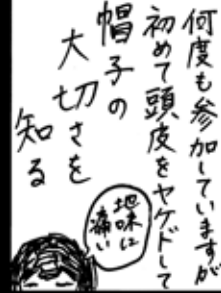 何度も参加していますが
初めて頭皮をヤケドして
帽子の
大切さを
知る
地味に
痛い